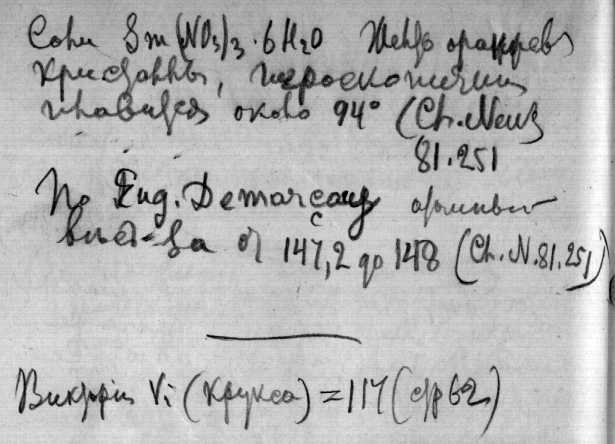 Соли Sm(NO3)3·6H2O Желто оранжев
кристаллы, гигроскопичны
плавится около 94° (Ch. News
81.251
По Eug. Demarçay атомный
вес от 147,2 до 148 (Ch. N. 81.251)
Викторий Vi (Крукса) = 117 (стр 62)